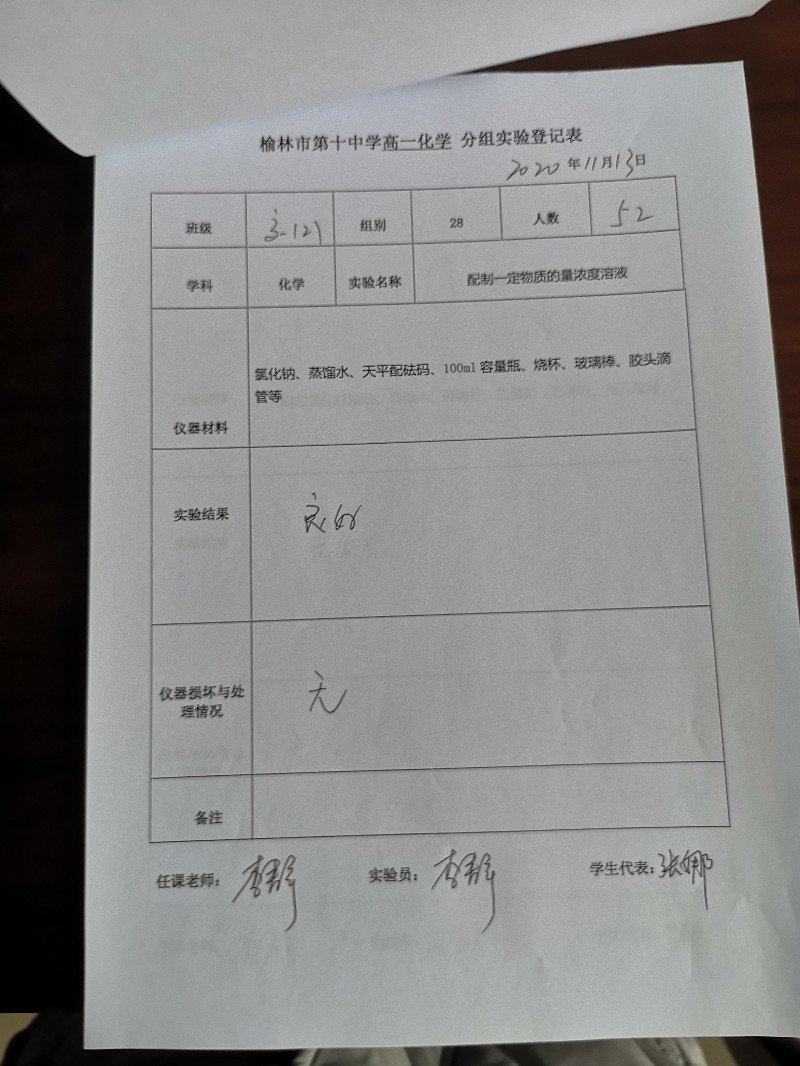 榆林市第十中学高一化学 分组实验登记表
2020 年 11 月 13 日
班级 高一(2) 组别 28 人数 52
学科 化学 实验名称 配制一定物质的量浓度溶液
氯化钠、蒸馏水、天平配砝码、100ml 容量瓶、烧杯、玻璃棒、胶头滴
管等
仪器材料
实验结果 良好
仪器损坏与处
理情况
无
备注
任课老师: 李静 实验员: 李静 学生代表: 张娜